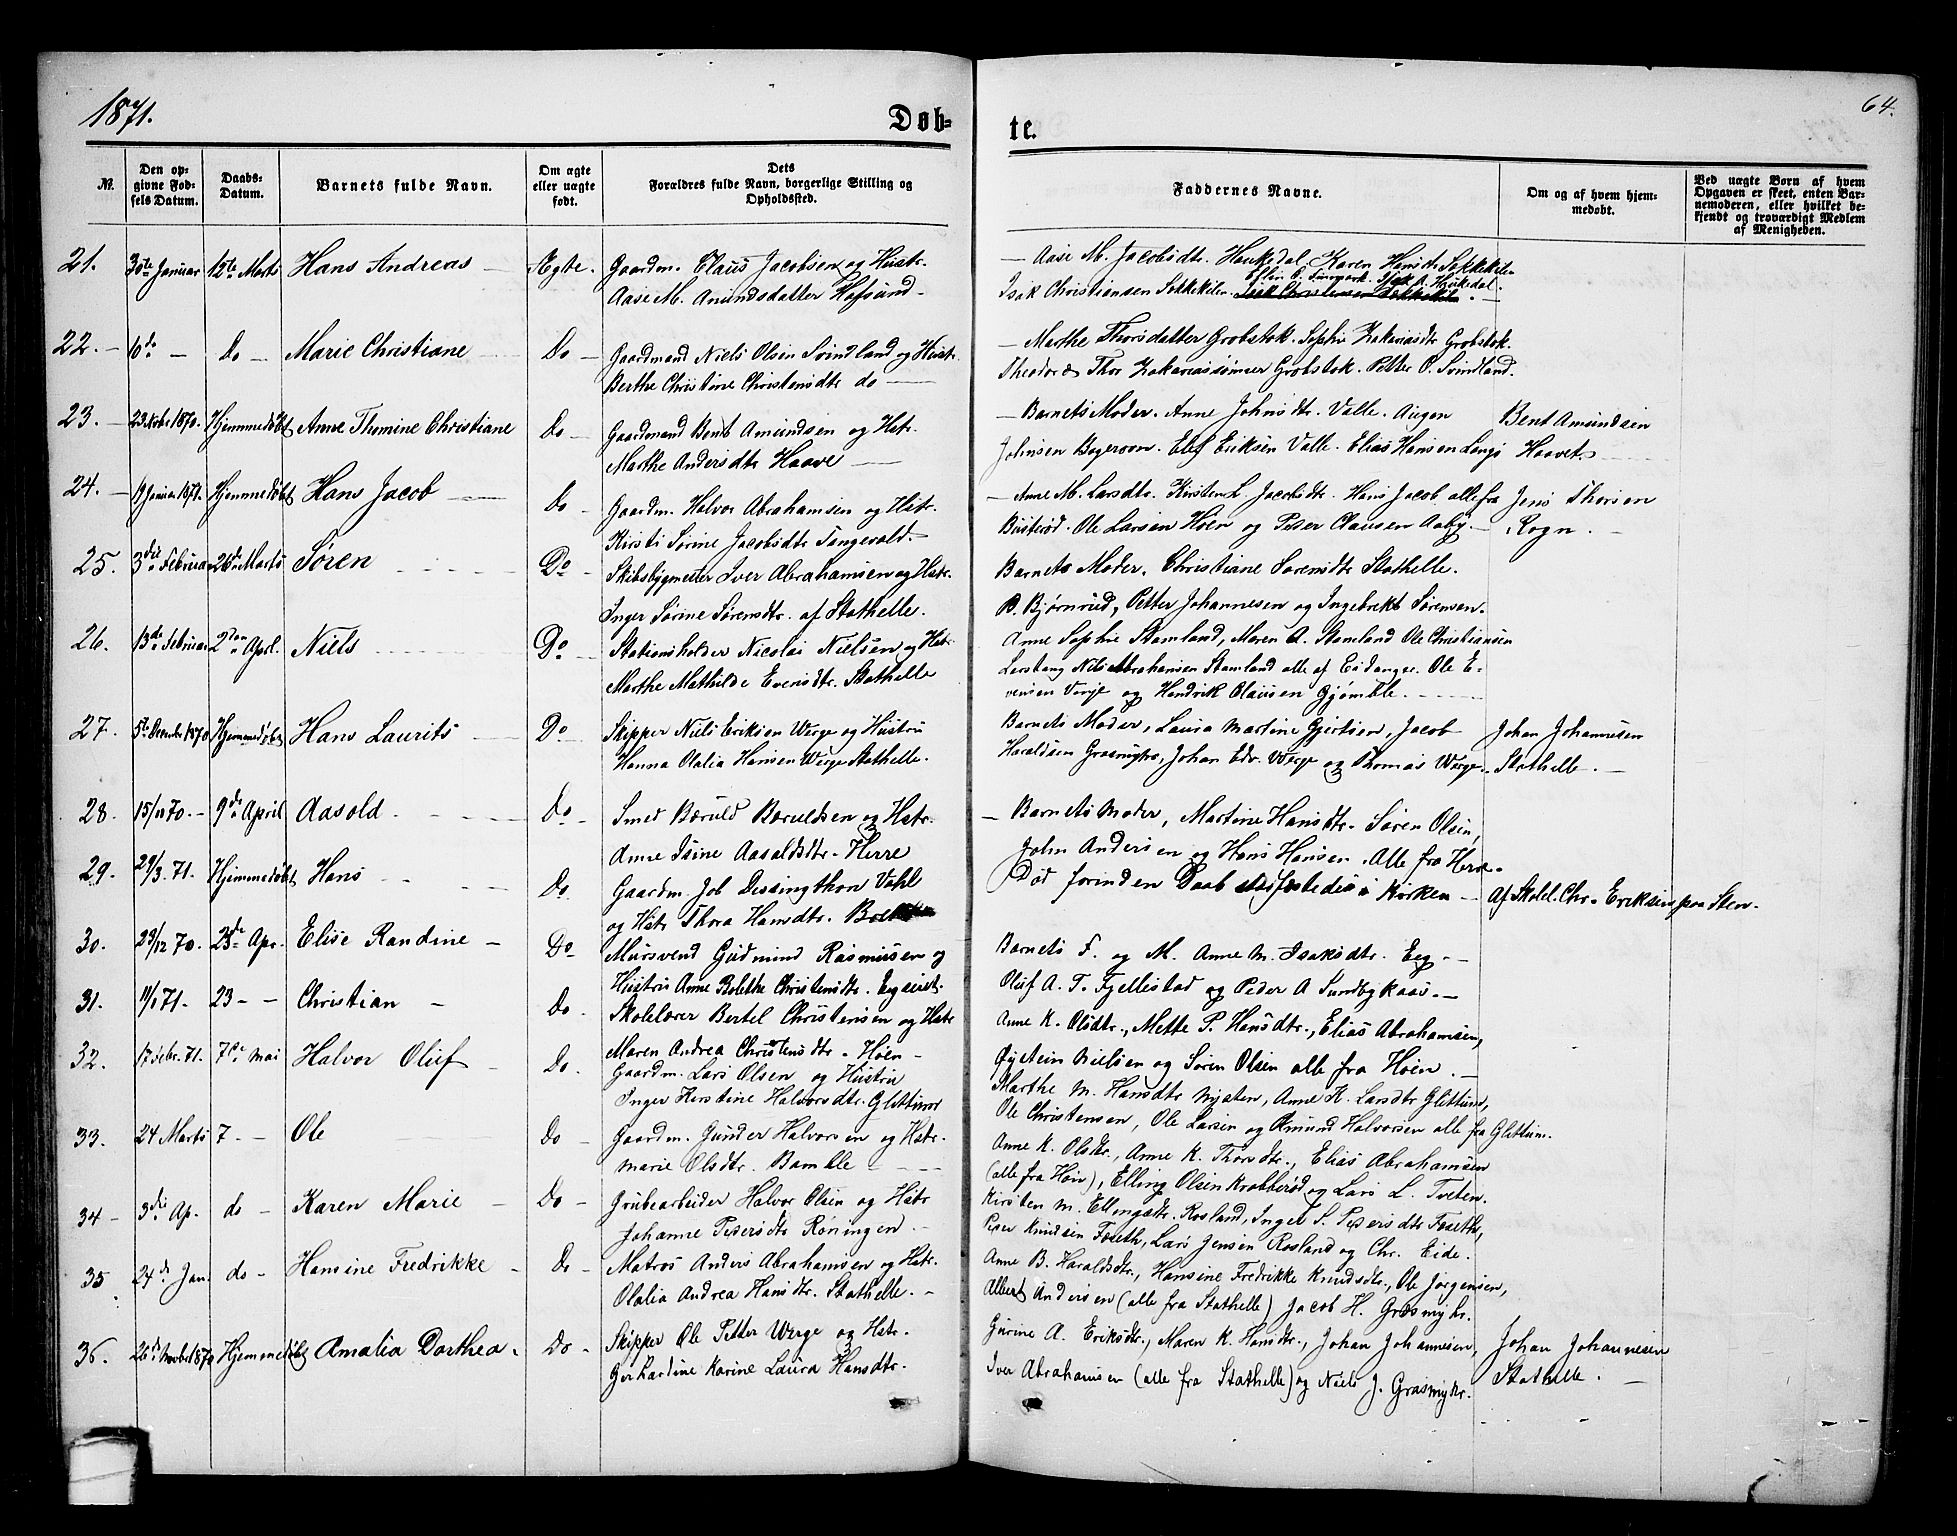 1871.
Døb=
te.
64.
No.
Den op-
givne Fød-
sels Datum.
Daabs-
Datum.
Barnets fulde Navn.
Om ægte
eller uægte
født.
Dets
Forældres fulde Navn, borgerlige Stilling og
Opholdssted.
Faddernes Navne.
Om og af hvem hjem-
medøbt.
Ved uægte Børn af hvem
Opgaven er skeet, enten Bar-
nemoderen, eller hvilket be-
kjendt og troværdigt Medlem
af Menigheden.
21. 30te Januar 12te Marts Hans Andreas — Ægte. Gaardm. Claus Jacobsen og Hustr.
Aase M. Amundsdatter Hafsund —
— Aase M. Jacobsdt. Haukedal, Karen Hansdt. Søkkekilen
Isak Christiansen Søkkekilen.
22. — 10de — do — Marie Christiane Do — Gaardmand Niels Olsen Svindland og Hustr.
Berthe Christine Christensdtr do —
— Marthe Thorsdatter Grobstok. Sophie Zakariasdt Grobstok.
Theodor & Thor Zakariassønner Grobstok. Petter O. Svindland.
23. — 23 Novbr 1870. Hjemmedøbt Anne Thomine Christiane Do — Gaardmand Bent Amundsen og Hstr.
Marthe Andersdtr Haave —
— Barnets Moder. Anne Johnsdtr. Valle. Augon
Johnsen Bogerovn. Elef Eriksen Valle. Elias Hansen Langø
Bent Amundsen
Haavet.
24. — 19 Januar 1871. Hjemmedøbt Hans Jacob — Do — Gaardm. Halvor Abrahamsen og Hstr.
Kirsti Sørine Jacobsdtr Tangvald. —
— Anne M. Larsdtr. Kirsten L. Jacobsdtr. Hans Jacob alle fra
Bustrød. Ole Larsen Höen og Peder Clausen Aaby. —
Jens Thorsen
Rogn. —
25. 3die Februar 26de Marts Søren Do — Skibsbygmester Iver Abrahamsen og Hstr.
Inger Sørine Sørensdtr. af Stathelle.
Barnets Moder. Christiane Sørensdtr Stathelle.
B. Bjørnrud, Petter Johannesen og Ingebrekt Sørensen.
26. 13de Februar 2den April. Niels Do — Stationsholder Nicolai Nielsen og Hstr
Marthe Mathilde Eversdtr. Stathelle
Anne Sophie Stamland, Maren A. Stamland Ole Christiansen
Lerstang Nils Abrahamsen Stamland alle af Eidanger. Ole E-
vensen Værje og Hendrik Olausen Gjømble.
27. 5te December 1870 Hjemmedøbt Hans Laurits Do Skipper Niels Eriksen Werge og Hustru
Hanna Olalia Hansen Werge Stathelle.
Barnets Moder, Laura Martine Gjertsen, Jacob
Haraldsen Grasmyhr, Johan Edv. Werge og Thomas Werge.
Johan Johannesen
Stathelle. —
28. 15/11 70. — 9de April Aasold. Do — Smed Bæruld Bæruldsen og Hstr.
Anne Isine Aasoldsdtr. Herre
— Barnets Moder, Martine Hansdtr. Søren Olsen,
John Andersen og Hans Hansen. Alle fra Herre.
29. 29/3. 71. Hjemmedøbt Hans Do. Gaardm. Job Dessingthon Vahl
og Hstr Thora Hansdtr.
Død forinden Daab stadfæstedes i Kirken —
Af Skolel. Chr. Eriksen paa Sten.
30. 23/12 70. 23de Apr. Elise Randine — Do — Mursvend Gudmund Rasmusen og
Hustru Anne Bolethe Christensdtr.
Barnets F. og M. Anne M. Isaksdtr. Eeg. —
Oluf A. T. Fjellestad og Peder A Sundby Kaas. —
31. 11/1 71. 23 — — Christian — Do — Skolelærer Bertel Christensen og Hstr
Maren Andrea Christensdtr. Höen —
Anne K. Olsdtr., Mette P. Hansdtr., Elias Abrahamsen,
Øystein Nielsen og Søren Olsen alle fra Höen. —
32. 17 Febr. 71. 7de Mai Halvor Oluf — Do. Gaardm. Lars Olsen og Hustru
Inger Kirstine Halvorsdtr. Glittum
Marthe M. Hansdtr Myaten, Anne K. Larsdtr Glittum,
Ole Christensen, Ole Larsen og Amund Halvorsen alle fra Glittum.
33. 24 Marts 7 — Ole Do — Gaardm. Gunder Halvorsen og Hstr.
Marie Olsdtr. Bamble —
Anne K. Olsdtr., Anne K. Thorsdtr., Elias Abrahamsen
(alle fra Höen), Elling Olsen Krabberød og Lars L. Tveten.
34 — 3die Ap. do — Karen Marie — Do — Grubearbeider Halvor Olsen og Hstr
Johanne Pedersdtr Roningen. —
Kirsten M. Ellingsdtr. Rosland, Inger S. Pedersdtr Foseth,
Peder Knudsen Foseth, Lars Jensen Rosland og Chr. Eide.
35. 24de Jan. do — Hansine Fredrikke — Do — Matros Anders Abrahamsen og Hstr.
Olalia Andrea Hansdtr. Stathelle. —
Anne B. Haraldsdtr., Hansine Fredrikke Knudsdtr., Ole Jørgensen,
Albert Andersen (alle fra Stathelle) Jacob H. Grasmyhr.
36. 26de Novbr 1870 Hjemmedøbt Amalia Dorthea. Do — Skipper Ole Petter Werge og Hstr.
Gerhardine Karine Laura Hansdtr.
Gurine A. Eriksdtr., Maren K. Hansdtr., Johan Johannesen,
Iver Abrahamsen (alle fra Stathelle) og Niels J. Grasmyhr.
Johan Johannesen
Stathelle. —